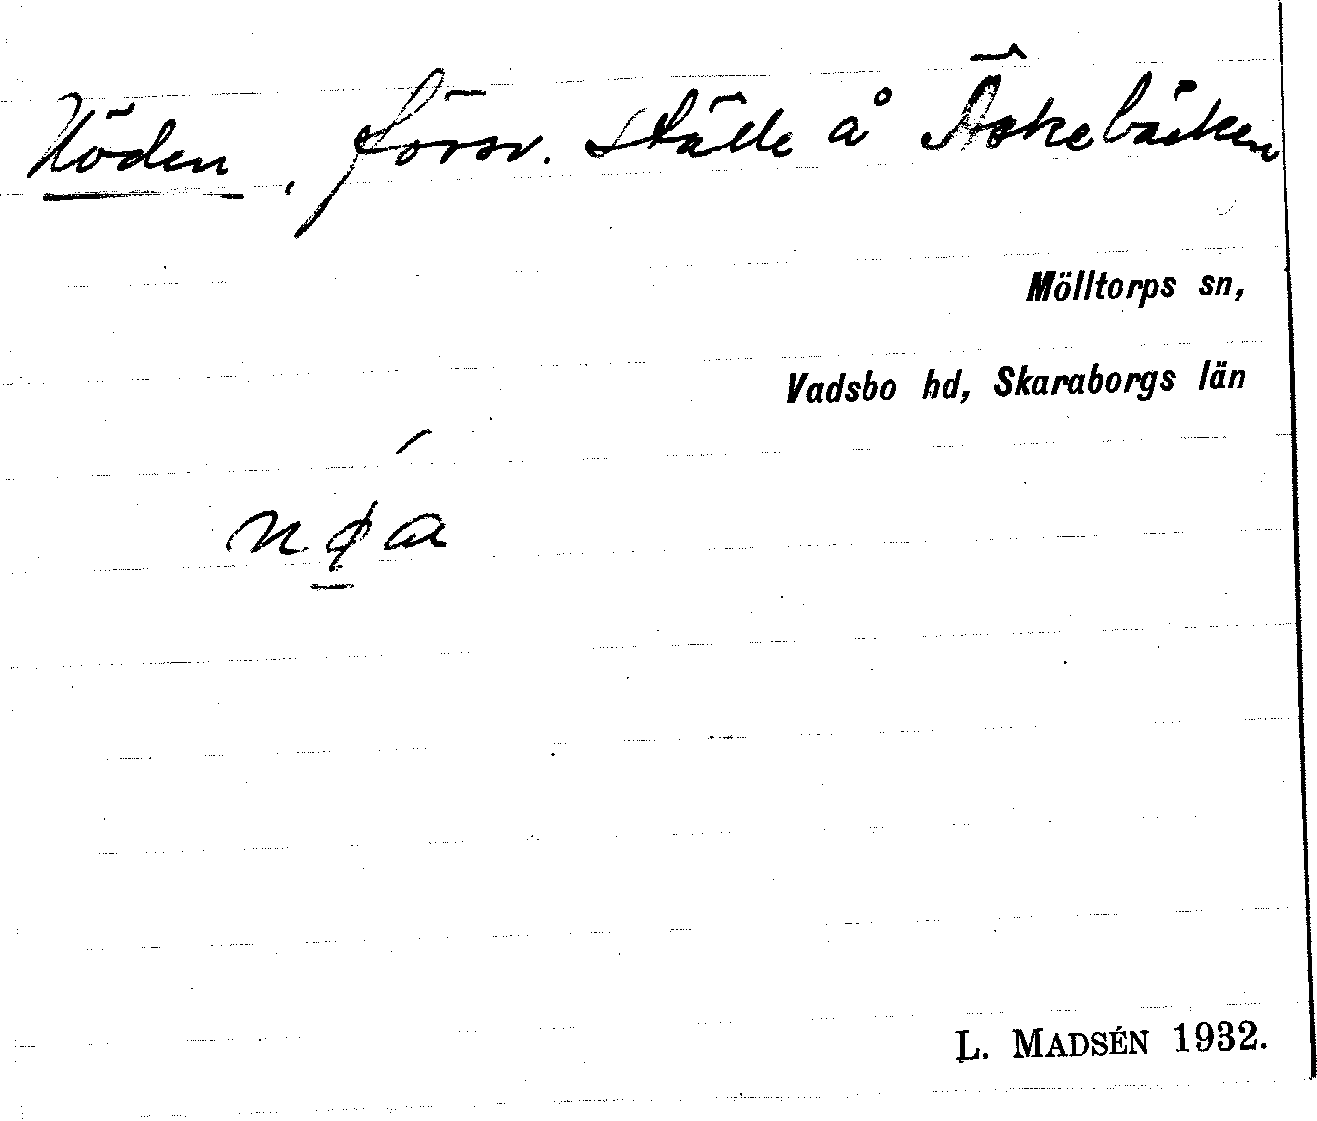 Nöden, försv. ställe å Äskebäcken
Mölltorps sn,
Vadsbo hd, Skaraborgs län
L. MADSÉN 1932.